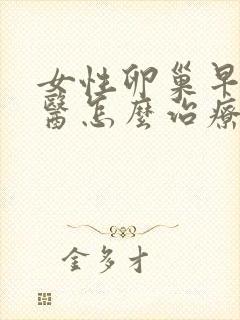 女性卵巢早
醫怎麼治療
金多才